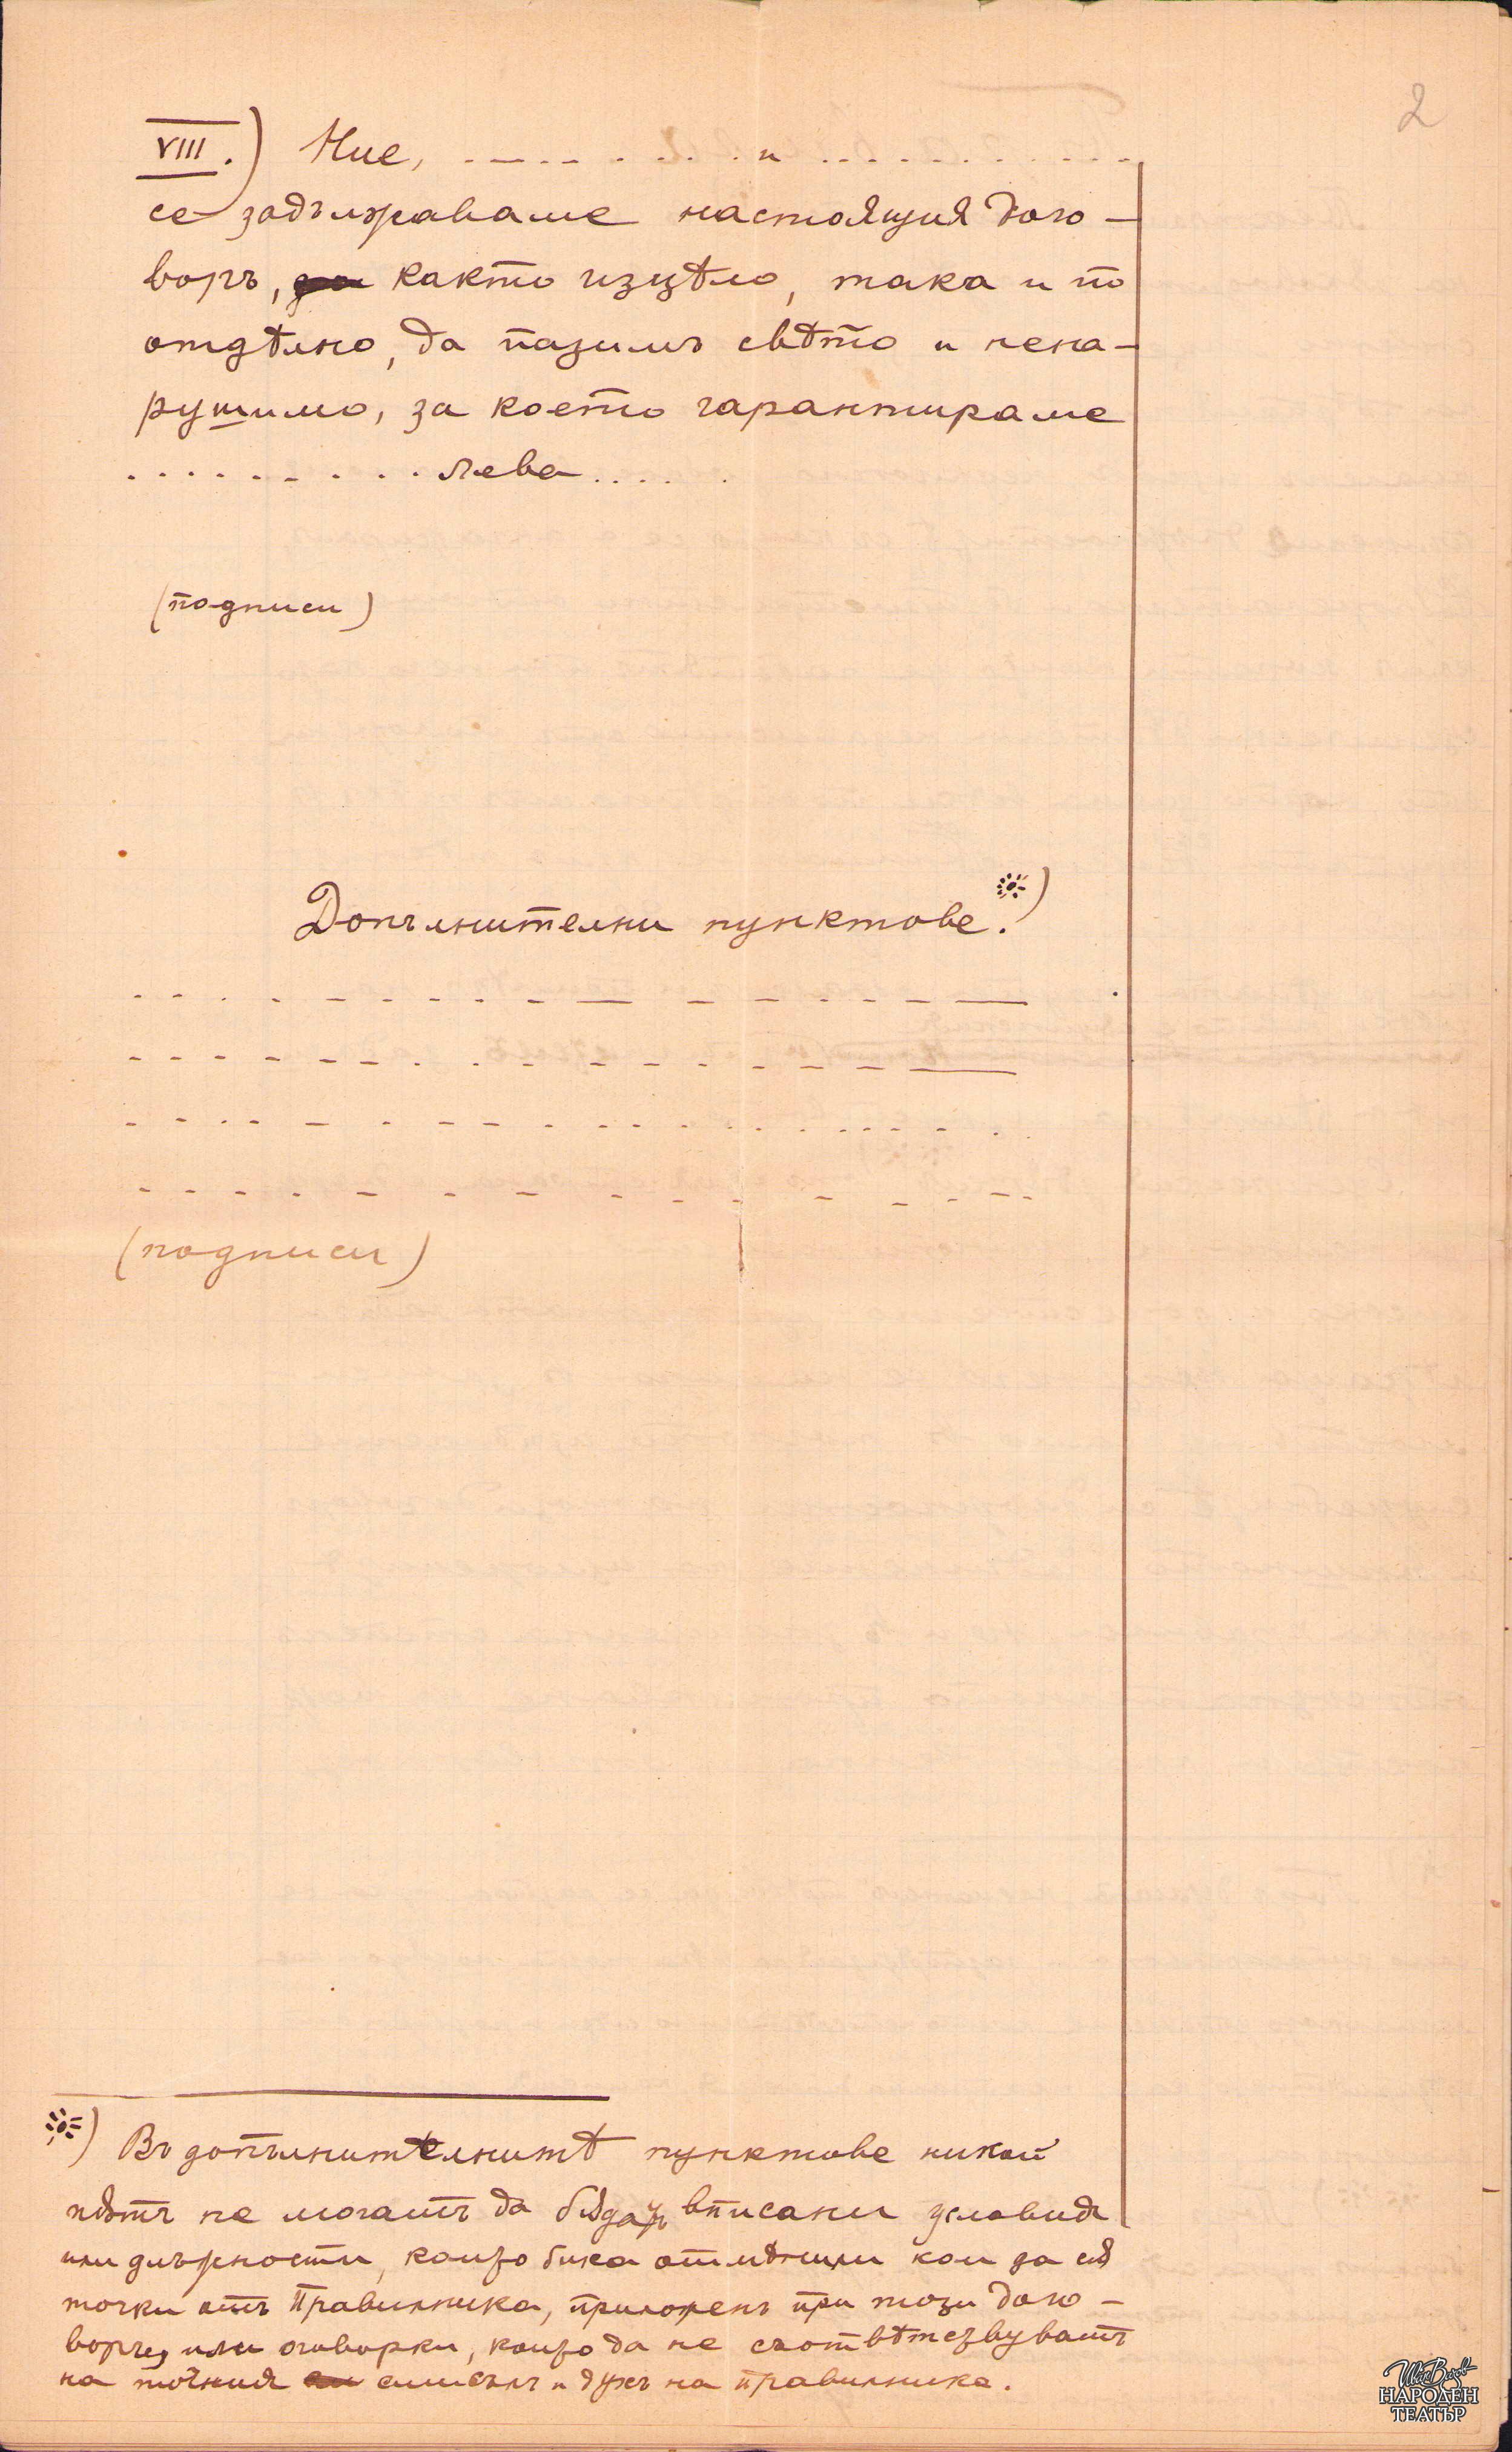 2
VIII.) Ние, . . . . . . . . и . . . . . . . . . . .
се задължаваме настоящия дого-
воръ, както изцѣло, така и по
отдѣлно, да пазимъ свѣто и нена-
рушимо, за което гарантираме
. . . . . . . . . лева . . . . .
(подписи)
Допълнителни пунктове.*)
(подписи)
*) Въ допълнителнитѣ пунктове никой
пѫть не могатъ да бѫдатъ вписани условия
или длъжности, които биха отмѣнили кои да сѫ
точки отъ Правилника, приложенъ при този дого-
воръ, или оговорки, които да не съответствуватъ
на точния смисълъ и духъ на правилника.
Иван Вазов
НАРОДЕН
ТЕАТЪР